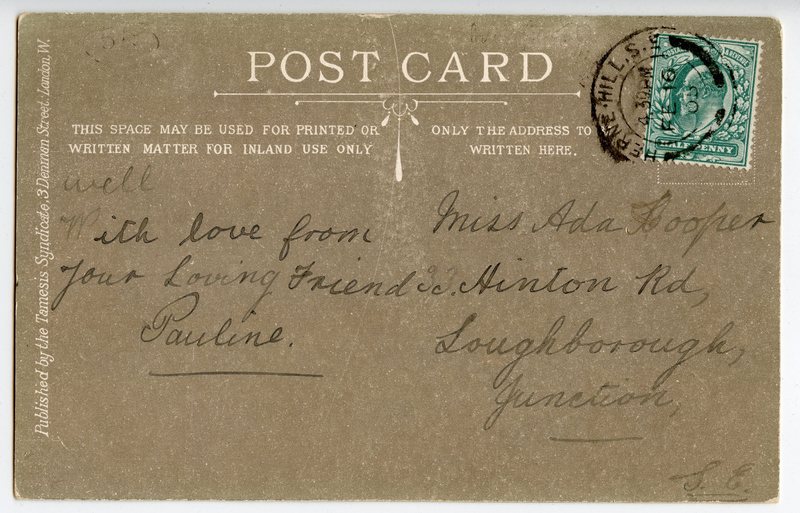 POST CARD
THIS SPACE MAY BE USED FOR PRINTED OR
WRITTEN MATTER FOR INLAND USE ONLY
ONLY THE ADDRESS TO
WRITTEN HERE.
HALFPENNY
HERNE·HILL.S.
4.30PM
03
Published by the Tamesis Syndicate, 3 Denman Street. London, W.
well
With love from
Your Loving Friend
Pauline.
Miss Ada Hooper
33. Hinton Rd,
Loughborough,
Junction,
S. E.